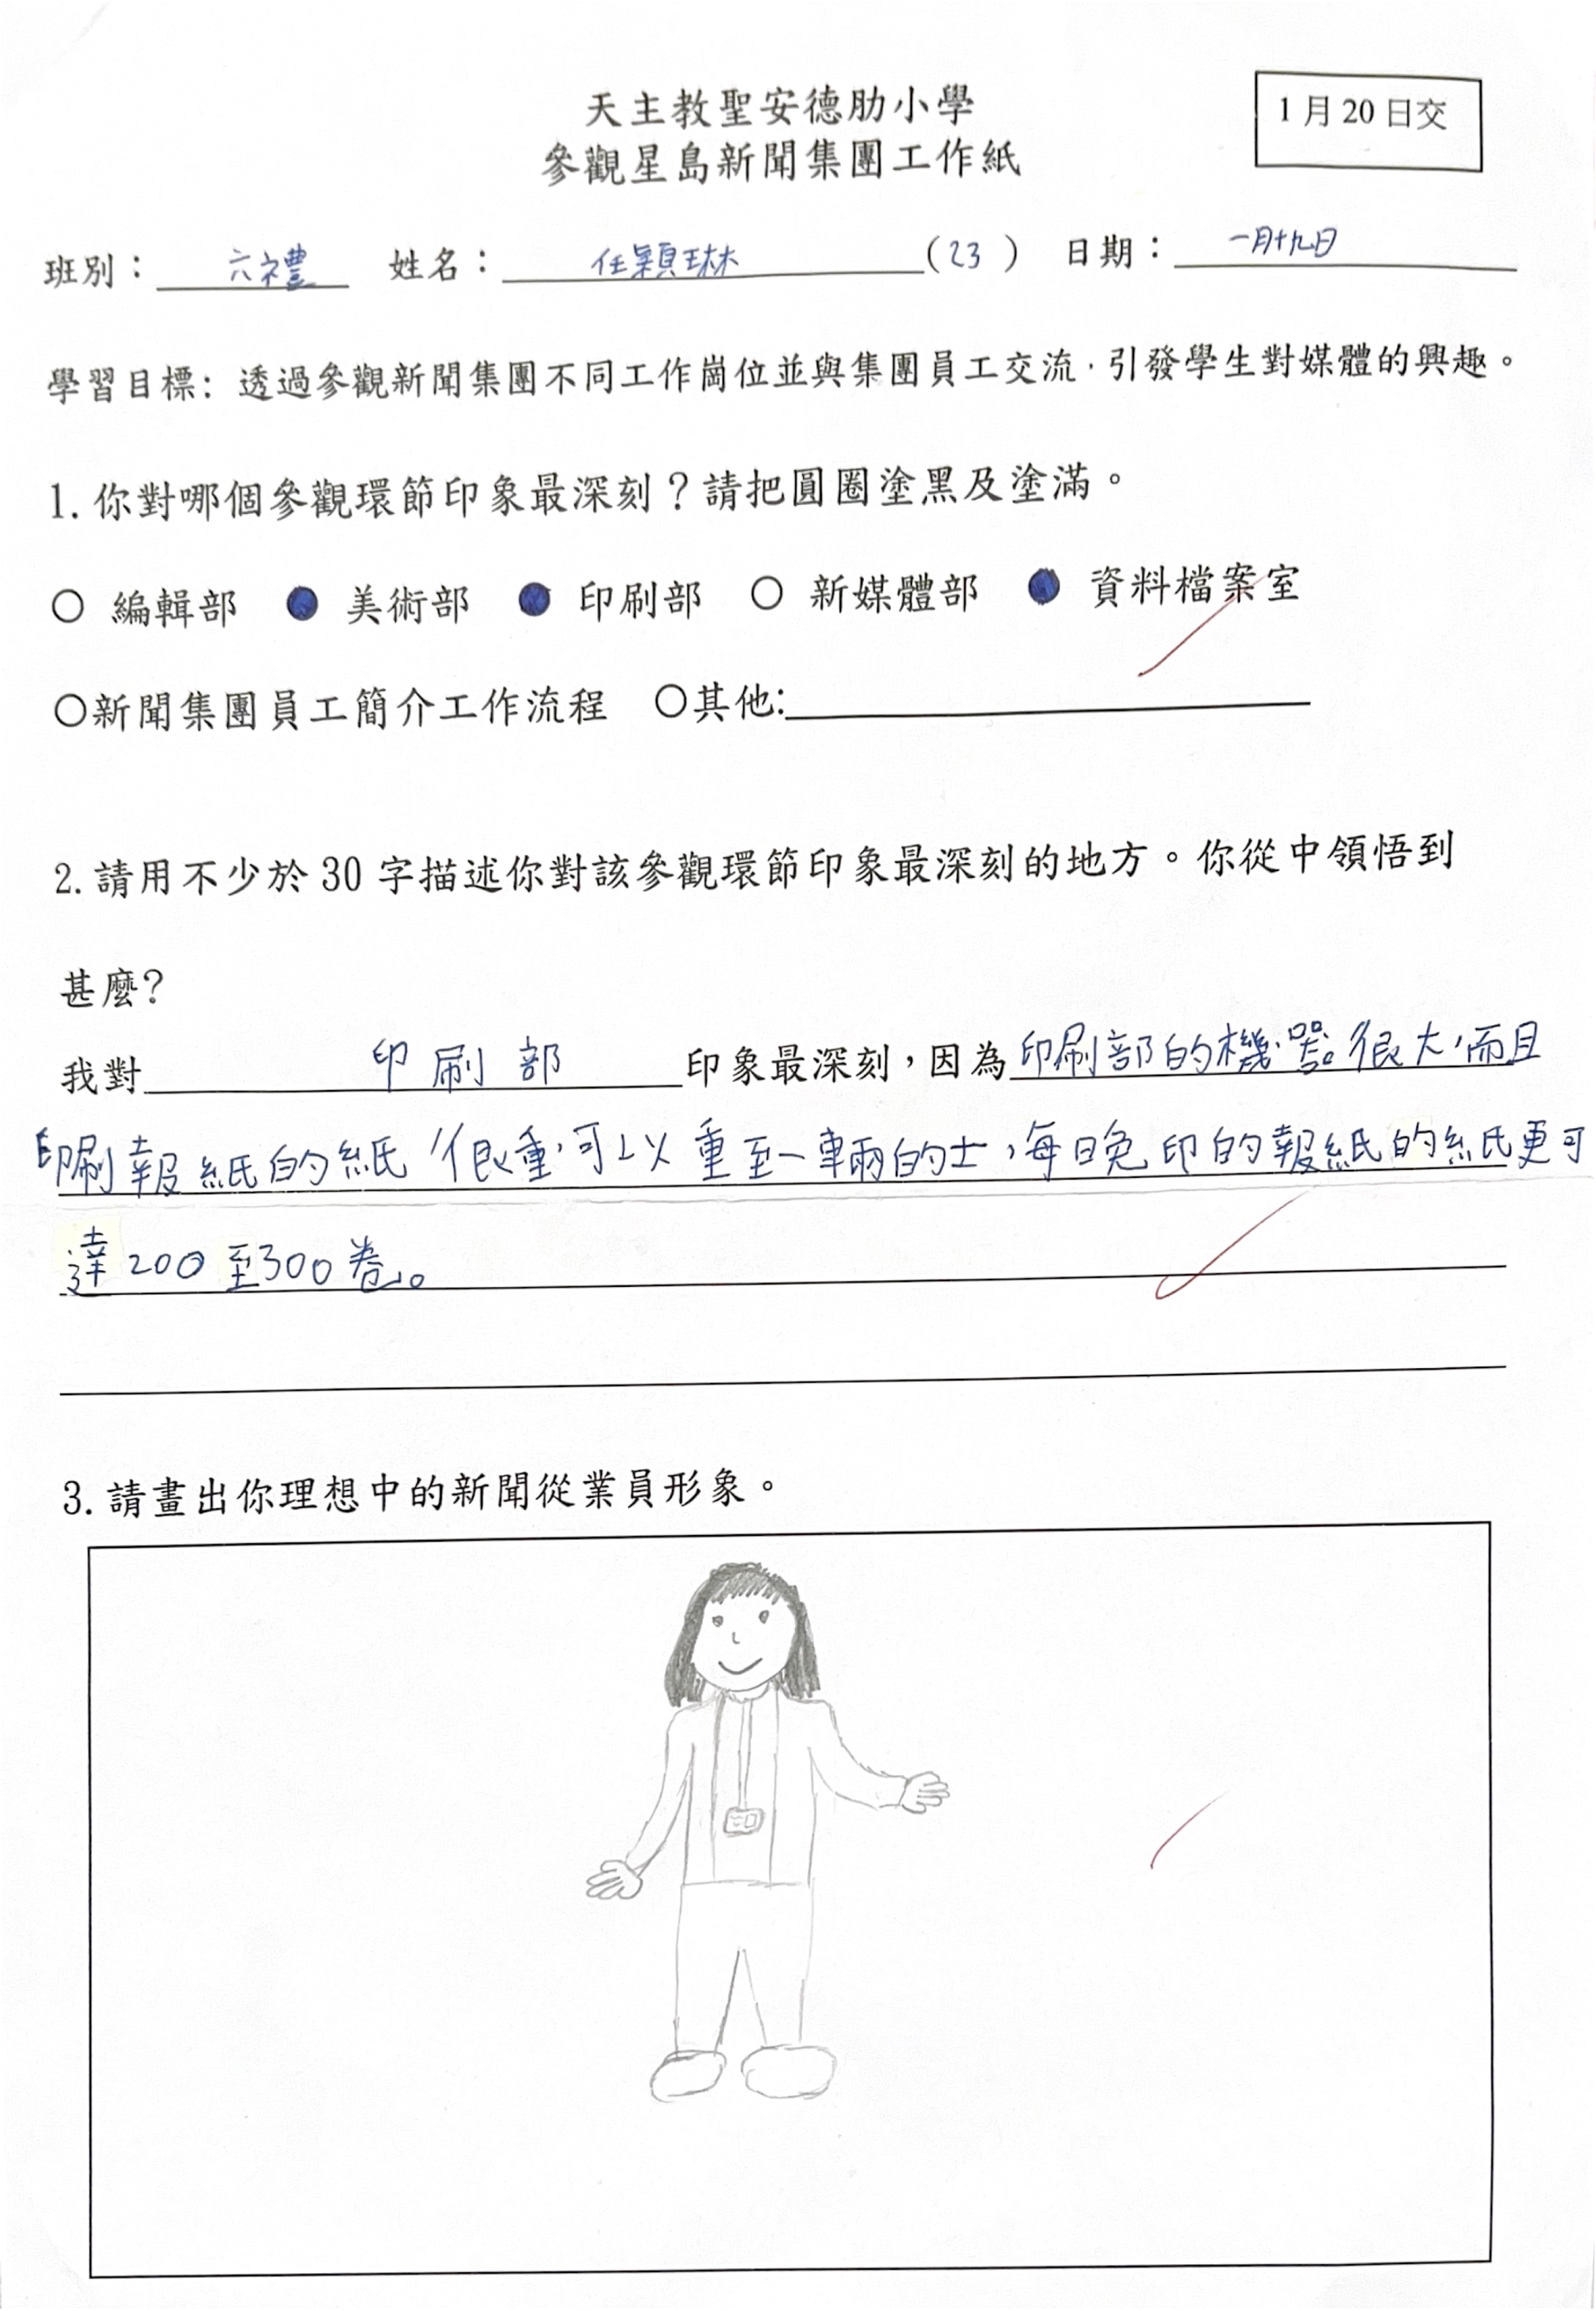 天主教聖安德肋小學
1月20日交
參觀星島新聞集團工作紙
班別：六禮 姓名：任穎琳(23) 日期：一月十九日
學習目標：透過參觀新聞集團不同工作崗位並與集團員工交流，引發學生對媒體的興趣。
1. 你對哪個參觀環節印象最深刻？請把圓圈塗黑及塗滿。
○ 編輯部 ● 美術部 ● 印刷部 ○ 新媒體部 ● 資料檔案室
○新聞集團員工簡介工作流程 ○其他:
2. 請用不少於 30 字描述你對該參觀環節印象最深刻的地方。你從中領悟到
甚麼?
我對印刷部印象最深刻，因為印刷部的機器很大，而且
印刷報紙的紙很重，可以重至一輛的士，每日晚印的報紙的紙更可
達200至300卷。
3. 請畫出你理想中的新聞從業員形象。